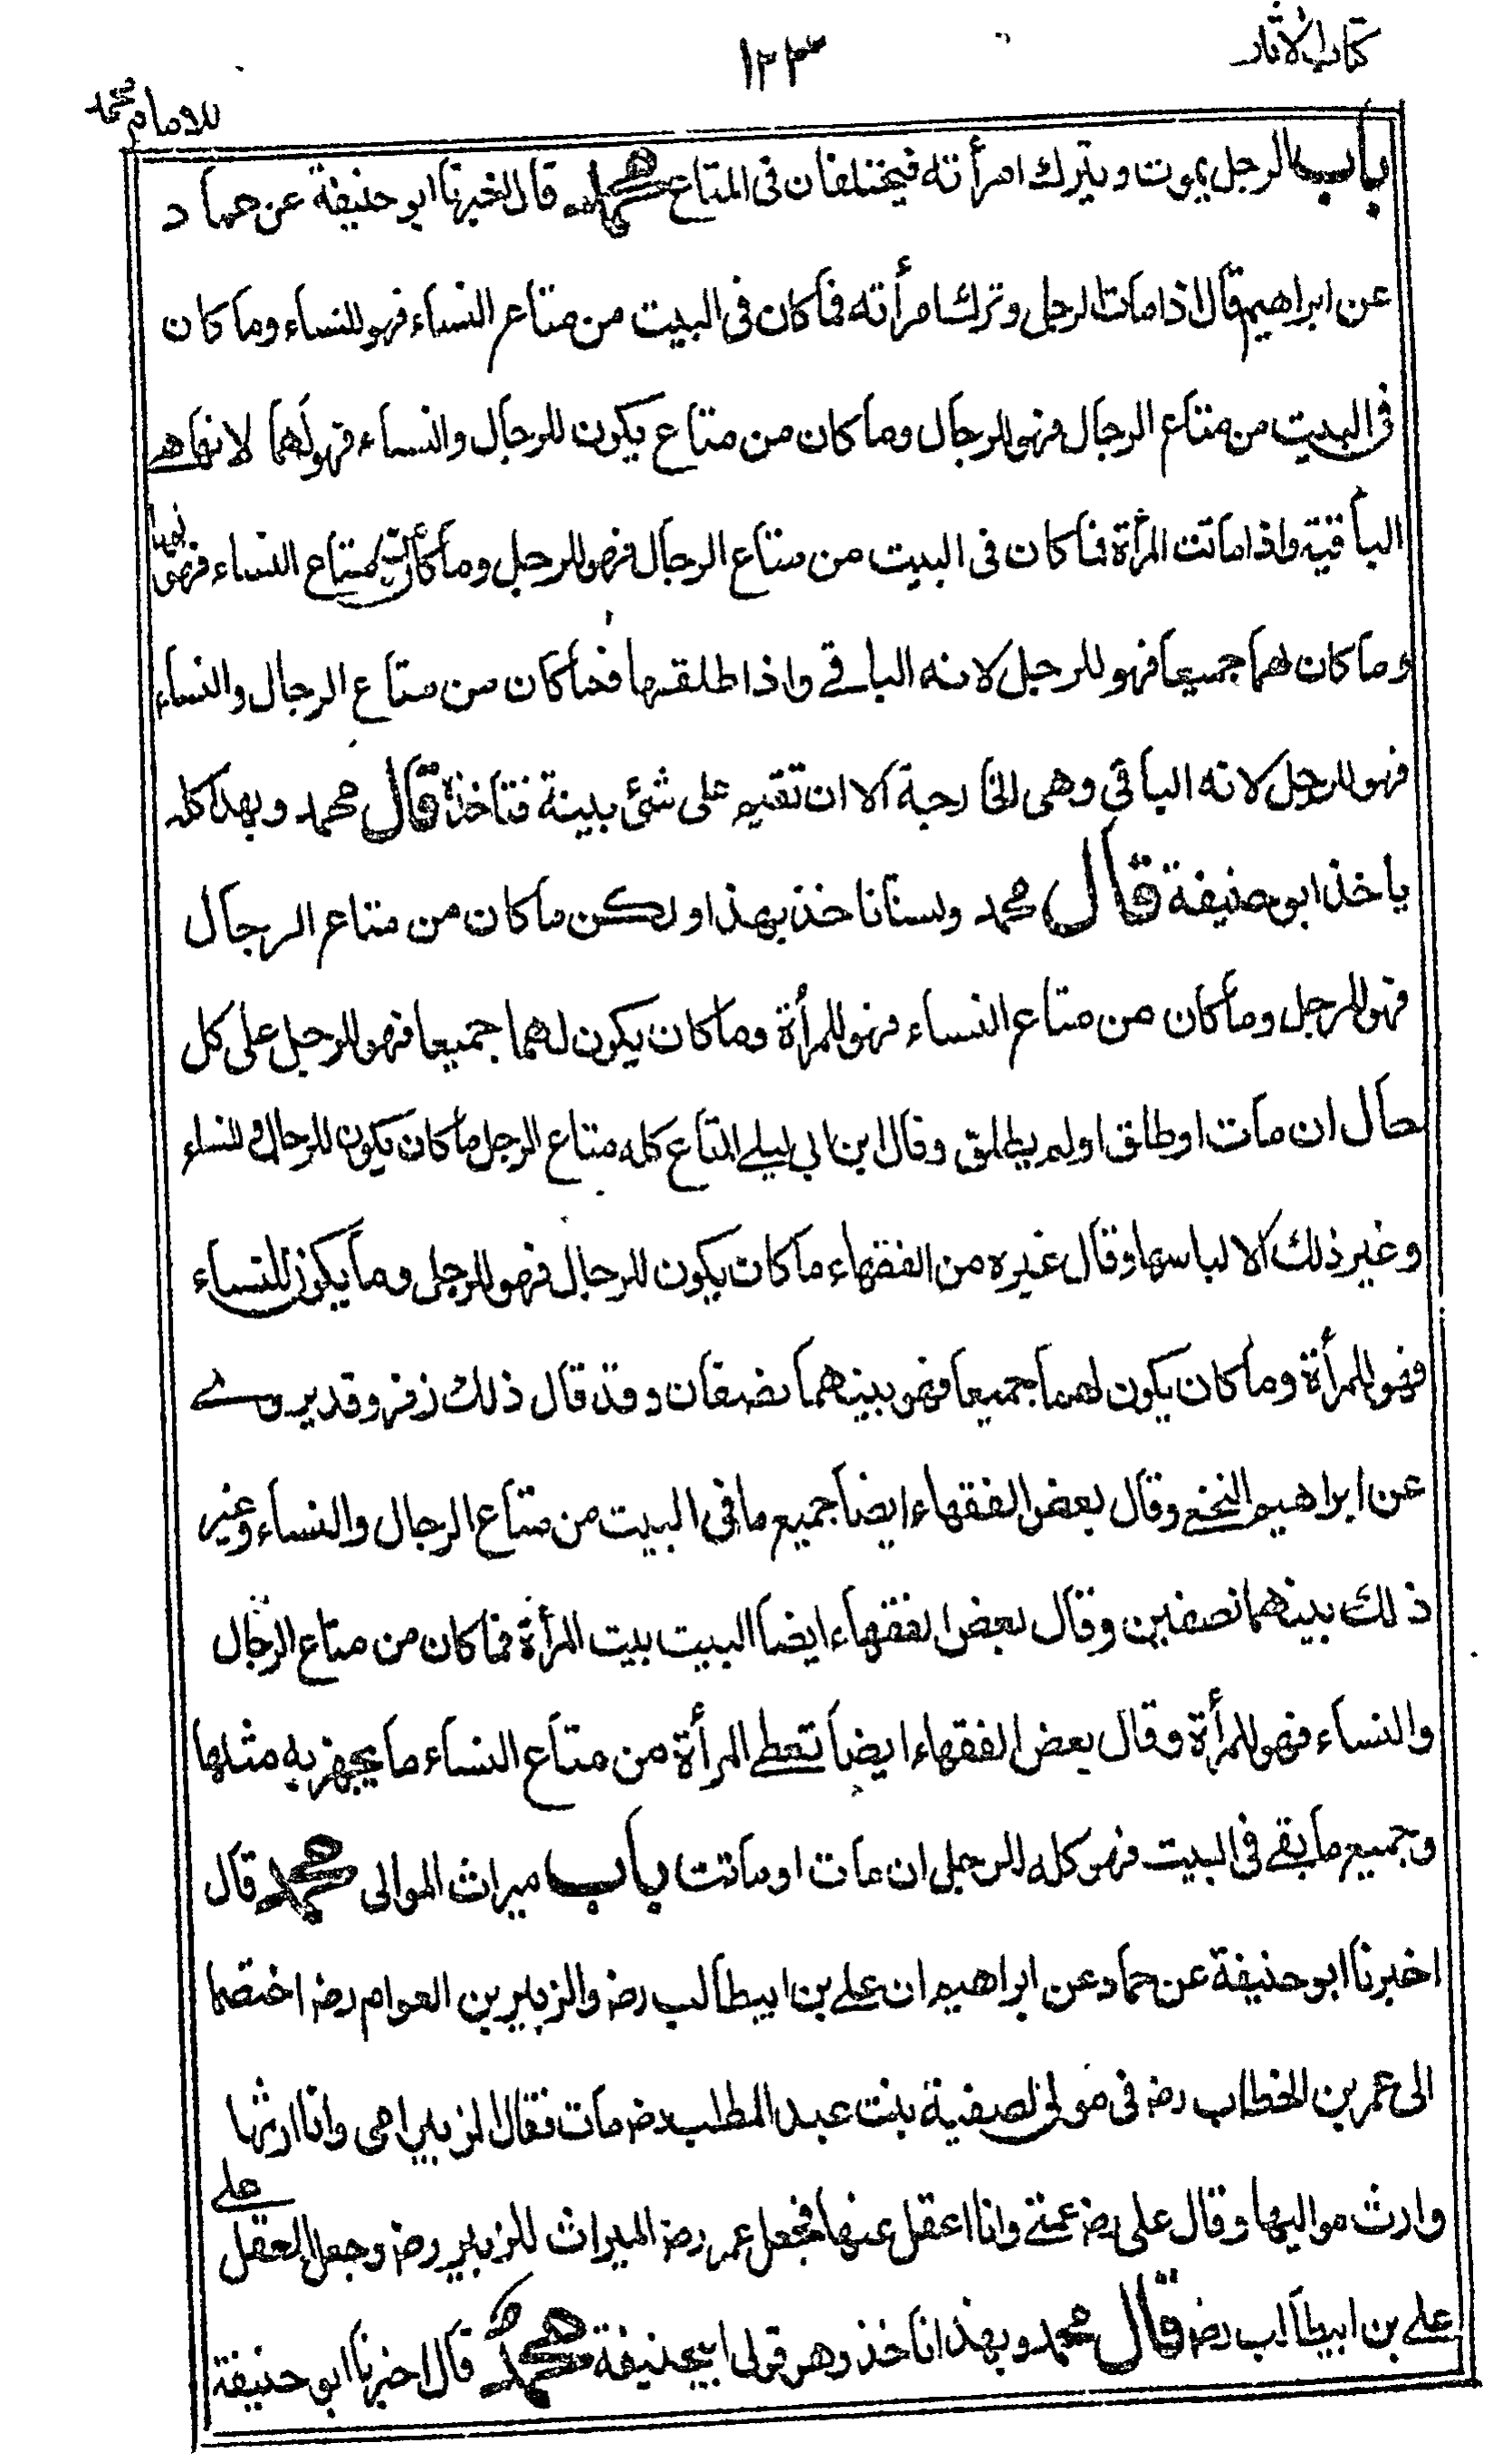 كتاب الاثار
١٢٣
للامام محمد
باب الرجل يموت ويترك امرأته فيختلفان فى المتاع محمد قال اخبرنا ابو حنيفة عن حماد
عن ابراهيم قال اذا مات الرجل وترك امرأته فما كان فى البيت من متاع النساء فهو للنساء وما كان
فى البيت من متاع الرجال فهو للرجال وما كان من متاع يكون للرجال والنساء فهو لهما لانها هى
الباقية واذا ماتت المرأة فما كان فى البيت من متاع الرجال فهو للرجل وما كان من متاع النساء فهو لها
وما كان لهما جميعا فهو للرجل لانه الباقي واذا طلقها فما كان من متاع الرجال والنساء
فهو للرجل لانه الباقي وهى الخارجة الا ان تقيم على شئ بينة فتاخذه قال محمد وبهذا كله
ياخذ ابو حنيفة قال محمد ولسنا ناخذ بهذا ولكن ما كان من متاع الرجال
فهو للرجل وما كان من متاع النساء فهو للمرأة وما كان يكون لهما جميعا فهو للرجل على كل
حال ان مات او طلق او لم يطلق وقال ابن ابي ليلے المتاع كله متاع الرجل ما كان يكون للرجال والنساء
وغير ذلك الا لباسها وقال غيره من الفقهاء ما كان يكون للرجال فهو للرجل وما يكون للنساء
فهو للمرأة وما كان يكون لهما جميعا فهو بينهما نصفان وقد قال ذلك زفر وقد يروے
عن ابراهيم النخعے وقال بعض الفقهاء ايضا جميع ما فى البيت من متاع الرجال والنساء وغير
ذلك بينهما نصفين وقال بعض الفقهاء ايضا البيت بيت المرأة فما كان من متاع الرجال
والنساء فهو للمرأة وقال بعض الفقهاء ايضا تعطے المرأة من متاع النساء ما يجهز به مثلها
وجميع ما بقے فى البيت فهو كله للرجل ان مات او ماتت باب ميراث الموالى محمد قال
اخبرنا ابو حنيفة عن حماد عن ابراهيم ان علے بن ابيطالب رضـ والزبير بن العوام رضـ اختصما
الى عمر بن الخطاب رضـ فى مولى لصفية بنت عبد المطلب رضـ مات فقال الزبير امى وانا ارثها
وارث مواليها وقال على رضـ عمتے وانا اعقل عنها فجعل عمر رضـ الميراث للزبير رضـ وجعل العقل علے
علے بن ابيطالب رضـ قال محمد وبهذا ناخذ وهو قول ابيحنيفة محمد قال اخبرنا ابو حنيفة